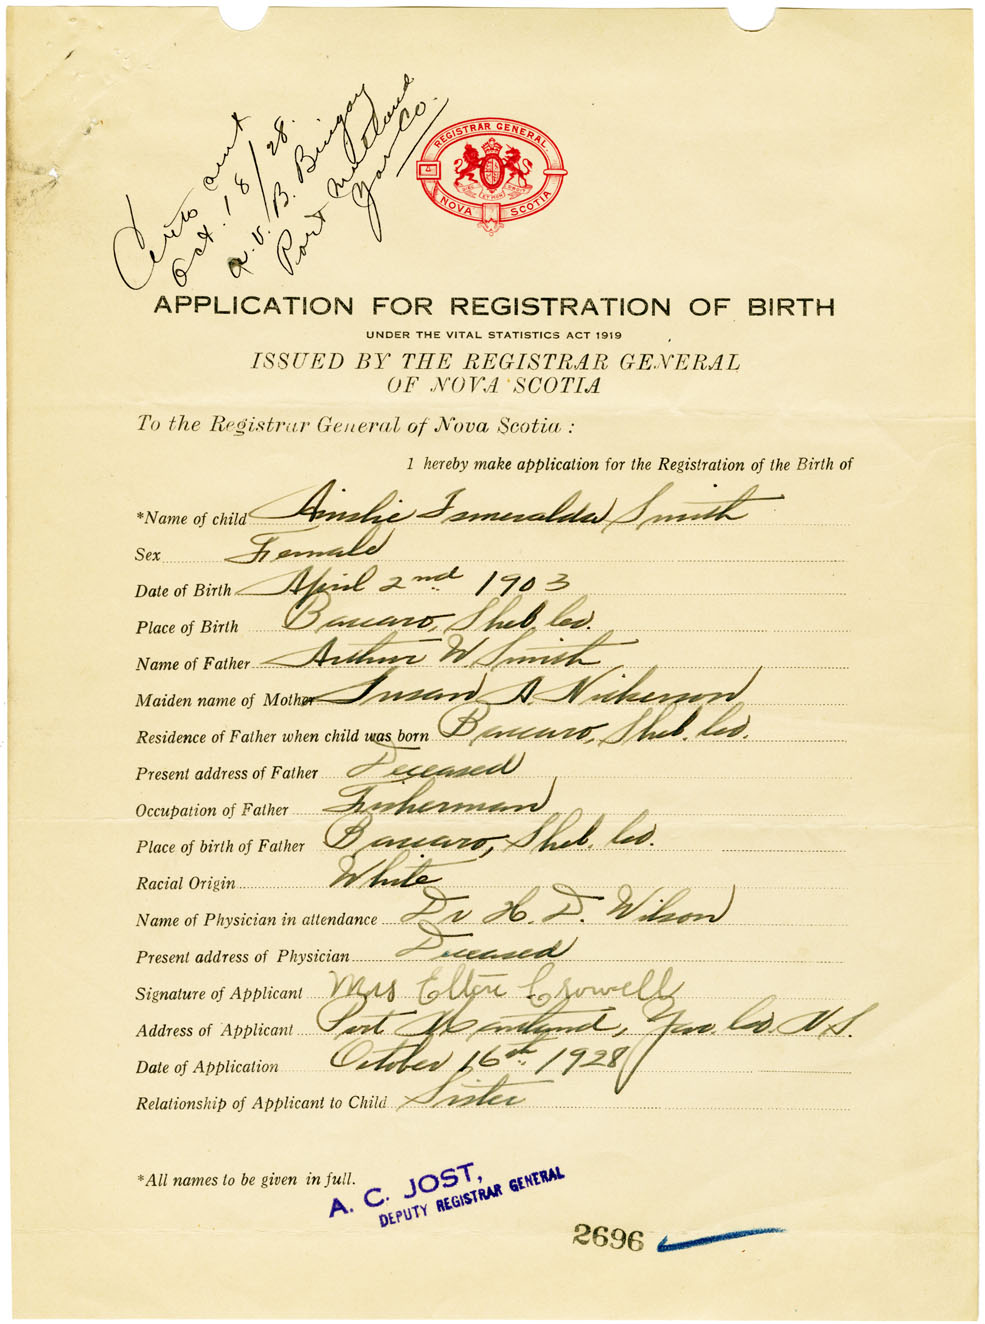 Oct. 18/28.
Port Maitland
Yar Co.
REGISTRAR GENERAL.
NOVA SCOTIA
APPLICATION FOR REGISTRATION OF BIRTH
UNDER THE VITAL STATISTICS ACT 1919
ISSUED BY THE REGISTRAR GENERAL
OF NOVA SCOTIA
To the Registrar General of Nova Scotia :
I hereby make application for the Registration of the Birth of
*Name of child Ainslie Esmeralda Smith
Sex Female
Date of Birth April 2nd 1903
Place of Birth Baccaro, Shel. Co.
Name of Father Arthur W Smith
Maiden name of Mother Susan A Nickerson
Residence of Father when child was born Baccaro, Shel. Co.
Present address of Father Deceased
Occupation of Father Fisherman
Place of birth of Father Baccaro, Shel. Co.
Racial Origin White
Name of Physician in attendance Dr H. D. Wilson
Present address of Physician Deceased
Signature of Applicant Mrs Elton Crowell
Address of Applicant Port Maitland, Yar. Co. N.S.
Date of Application October 16th 1928
Relationship of Applicant to Child Sister
*All names to be given in full.
A. C. JOST,
DEPUTY REGISTRAR GENERAL
2696